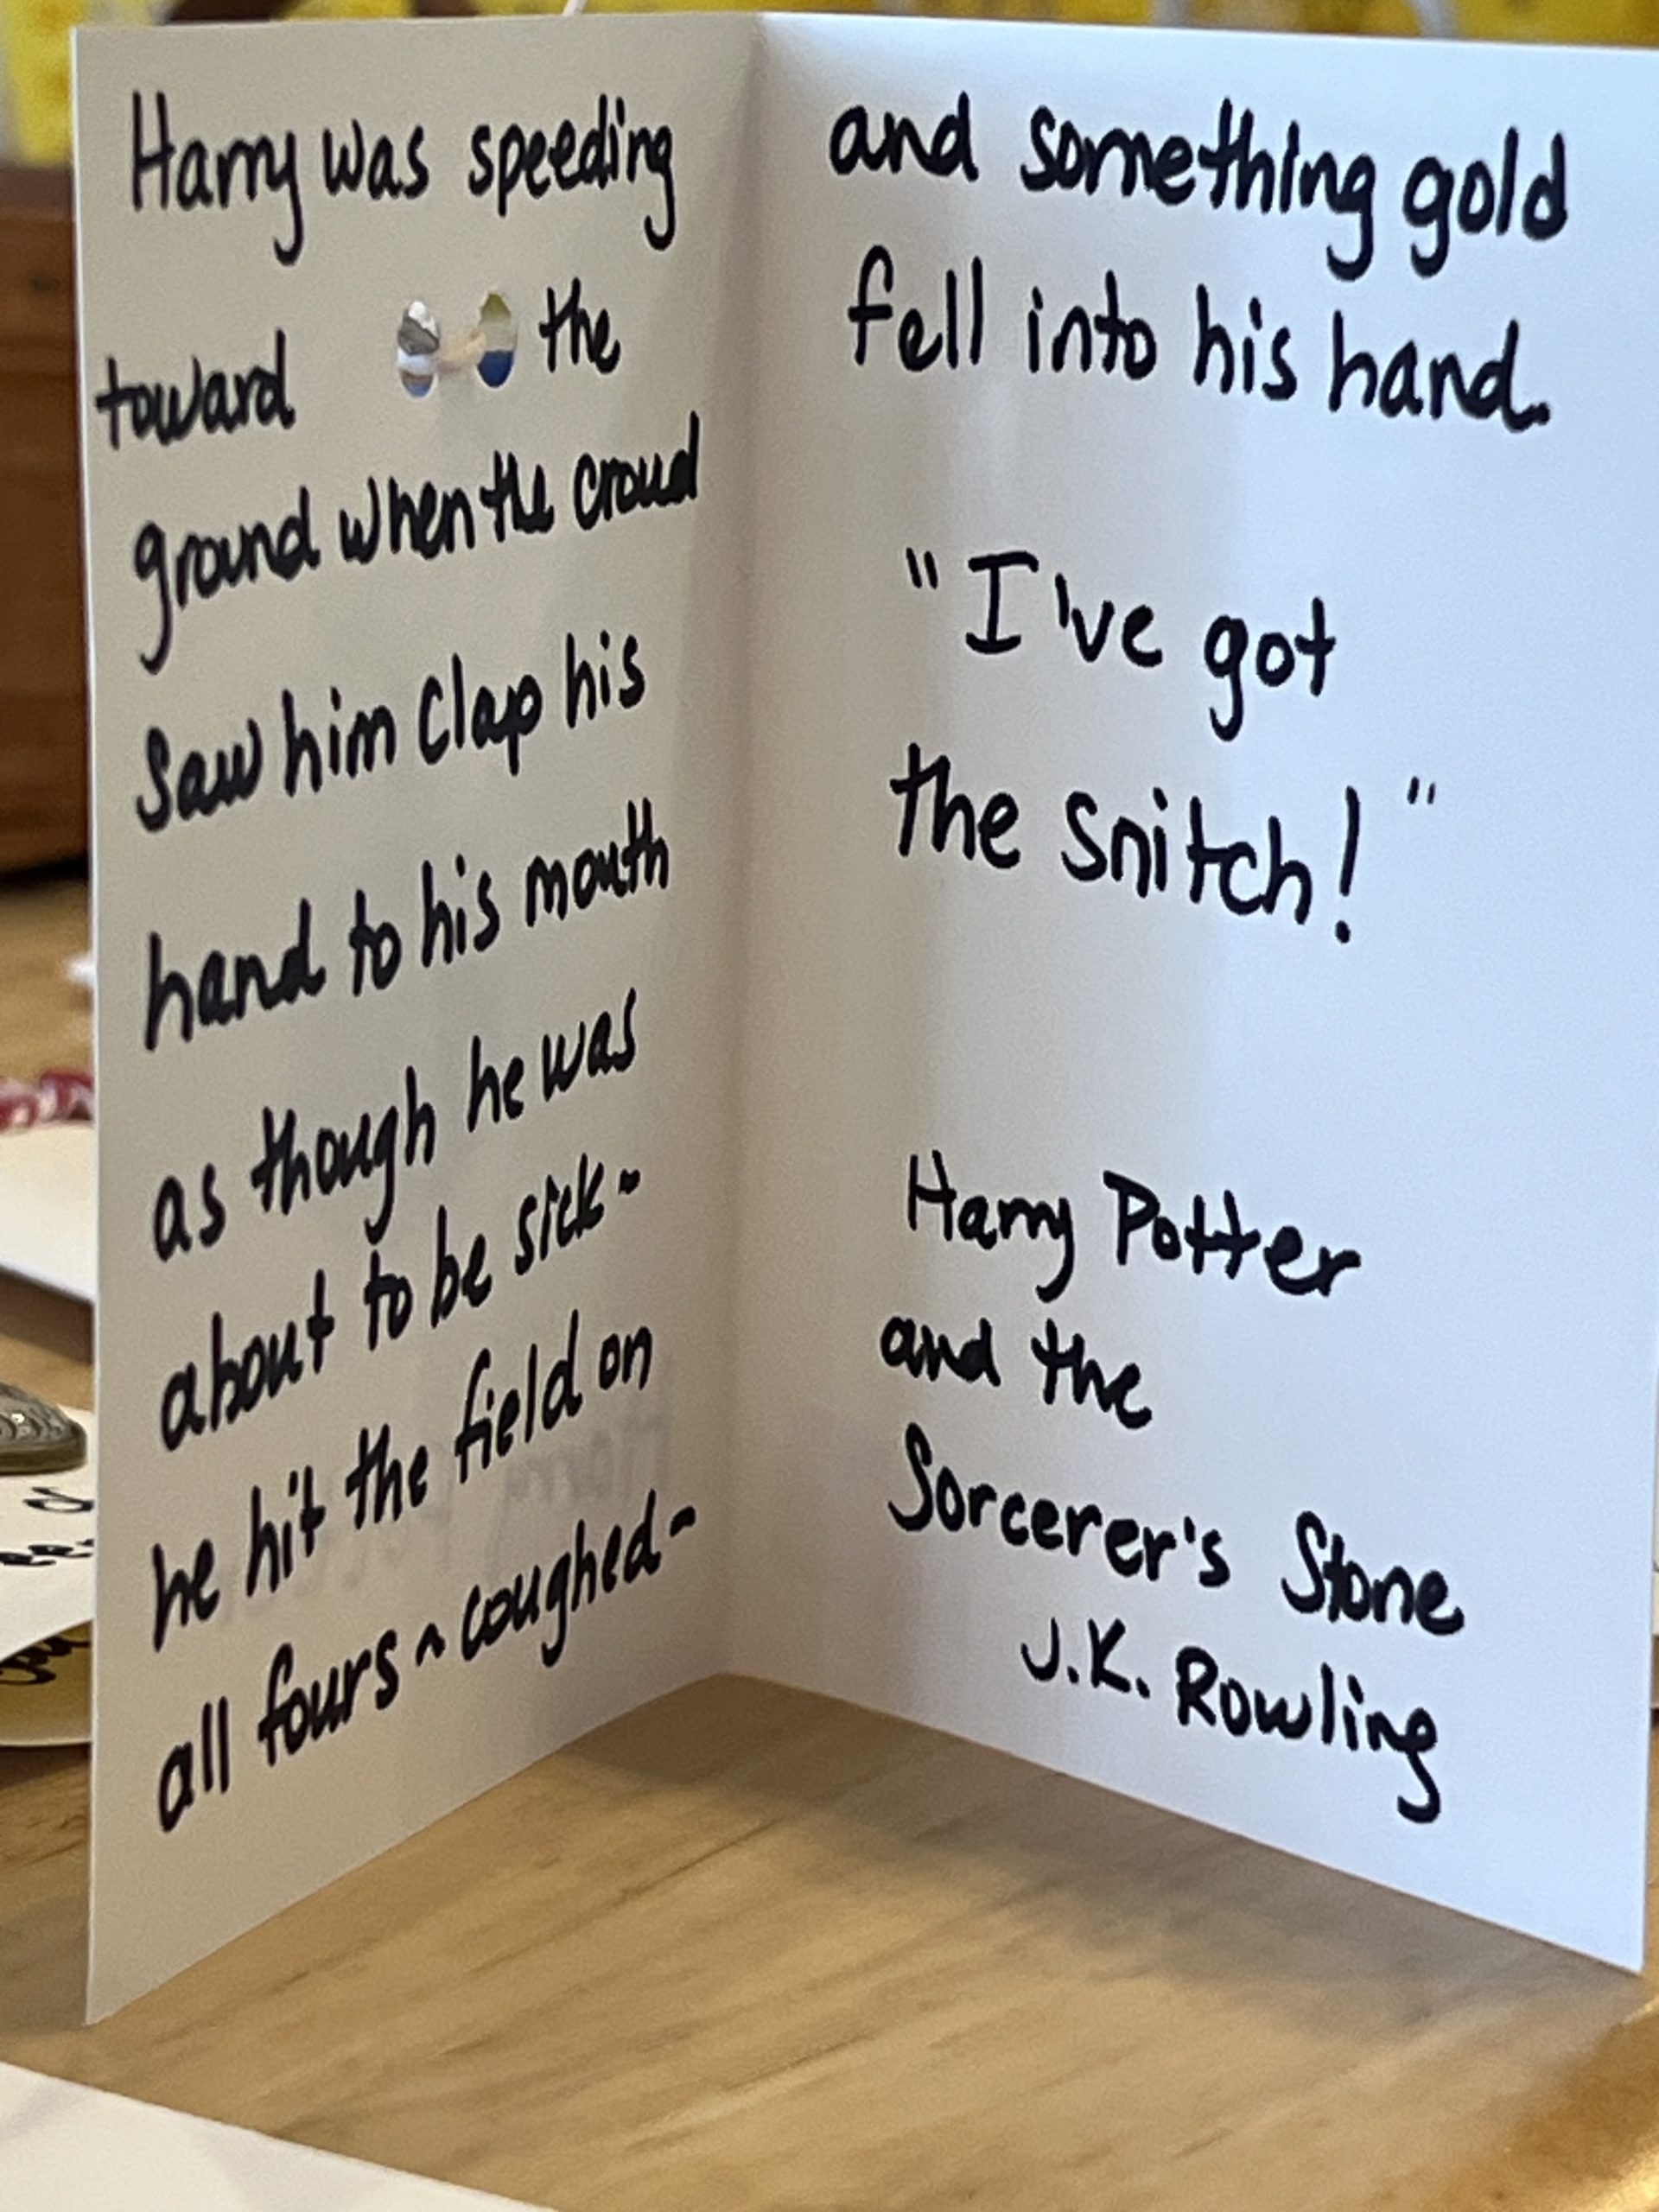 Harry was speeding
toward the
ground when the croud
saw him clap his
hand to his mouth
as though he was
about to be sick-
he hit the field on
all fours - coughed-
and something gold
fell into his hand.
"I've got
the snitch!"
Harry Potter
and the
Sorcerer's Stone
J.K. Rowling